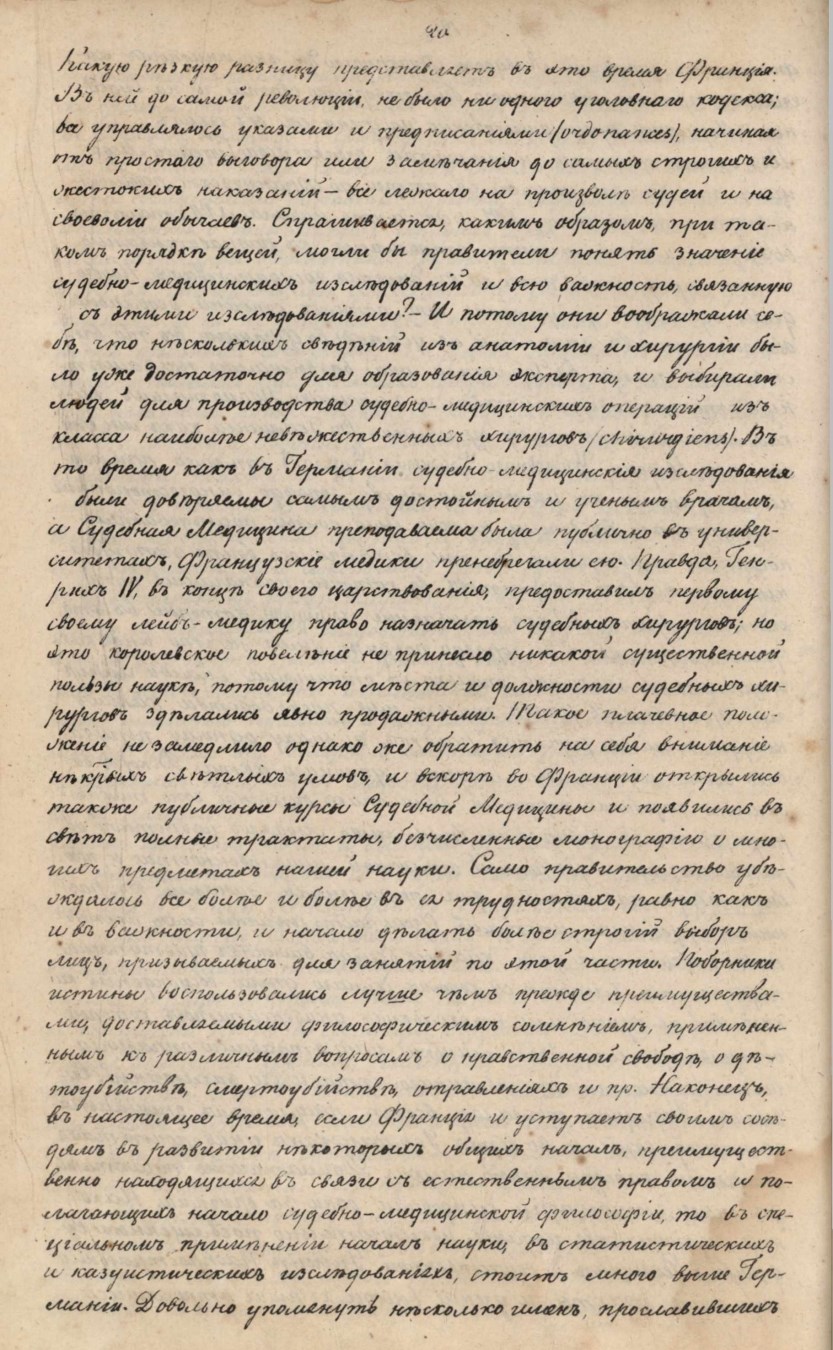 20
Какую рѣзкую разницу представляетъ въ это время Франція.
Въ ней до самой революціи, не было ни одного уголовнаго кодекса;
все управлялось указами и предписаніями (ordonances), начиная
отъ простаго выговора или замѣчанія до самыхъ строгихъ и
жестокихъ наказаній – все лежало на произволѣ судей и на
своеволіи обычаевъ. Спрашивается, какимъ образомъ, при та-
комъ порядкѣ вещей, могли бы правители понять значеніе
судебно-медицинскихъ изслѣдованій и всю важность, связанную
съ этими изслѣдованіями? – И потому они воображали се-
бѣ, что нѣсколькихъ свѣдѣній изъ анатоміи и хирургіи бы-
ло уже достаточно для образованія эксперта, и выбирали
людей для производства судебно-медицинскихъ операцій изъ
класса наиболѣе невѣжественныхъ хирурговъ (chirurgiens). Въ
то время какъ въ Германіи судебно-медицинскія изслѣдованія
были довѣряемы самымъ достойнымъ и ученымъ врачамъ,
а Судебная Медицина преподаваема была публично въ универ-
ситетахъ, Французскіе медики пренебрегали ею. Правда, Ген-
рихъ IV, въ концѣ своего царствованія, предоставилъ первому
своему лейбъ-медику право назначать судебныхъ хирурговъ; но
это королевское повелѣніе не принесло никакой существенной
пользы наукѣ, потому что мѣста и должности судебныхъ хи-
рурговъ здѣлались явно продажными. Такое плачевное поло-
женіе не замедлило однако же обратить на себя вниманіе
нѣкрыхъ свѣтлыхъ умовъ, и вскорѣ во Франціи открылись
также публичные курсы Судебной Медицины и появились въ
свѣтъ полные трактаты, безчисленные монографіи о мно-
гихъ предметахъ нашей науки. Само правительство убѣ-
ждалось все болѣе и болѣе въ ея трудностяхъ, равно какъ
и въ важности, и начало дѣлать болѣе строгій выборъ
лицъ, призываемыхъ для занятій по этой части. Поборники
истины воспользовались лучше чѣмъ прежде преимущества-
ми, доставляемыми философическимъ сомнѣніемъ, примѣнен-
нымъ къ различнымъ вопросамъ о нравственной свободѣ, о дѣ-
тоубійствѣ, смертоубійствѣ, отравленіяхъ и пр. Наконецъ,
въ настоящее время, если Франція и уступаетъ своимъ сосѣ-
дямъ въ развитіи нѣкоторыхъ общихъ началъ, преимущест-
венно находящихся въ связи съ естественнымъ правомъ и по-
лагающихъ начало судебно-медицинской философіи, то въ спе-
ціальномъ примѣненіи началъ науки, въ статистическихъ
и казуистическихъ изслѣдованіяхъ, стоитъ много выше Гер-
маніи. Довольно упомянуть нѣсколько именъ, прославившихъ